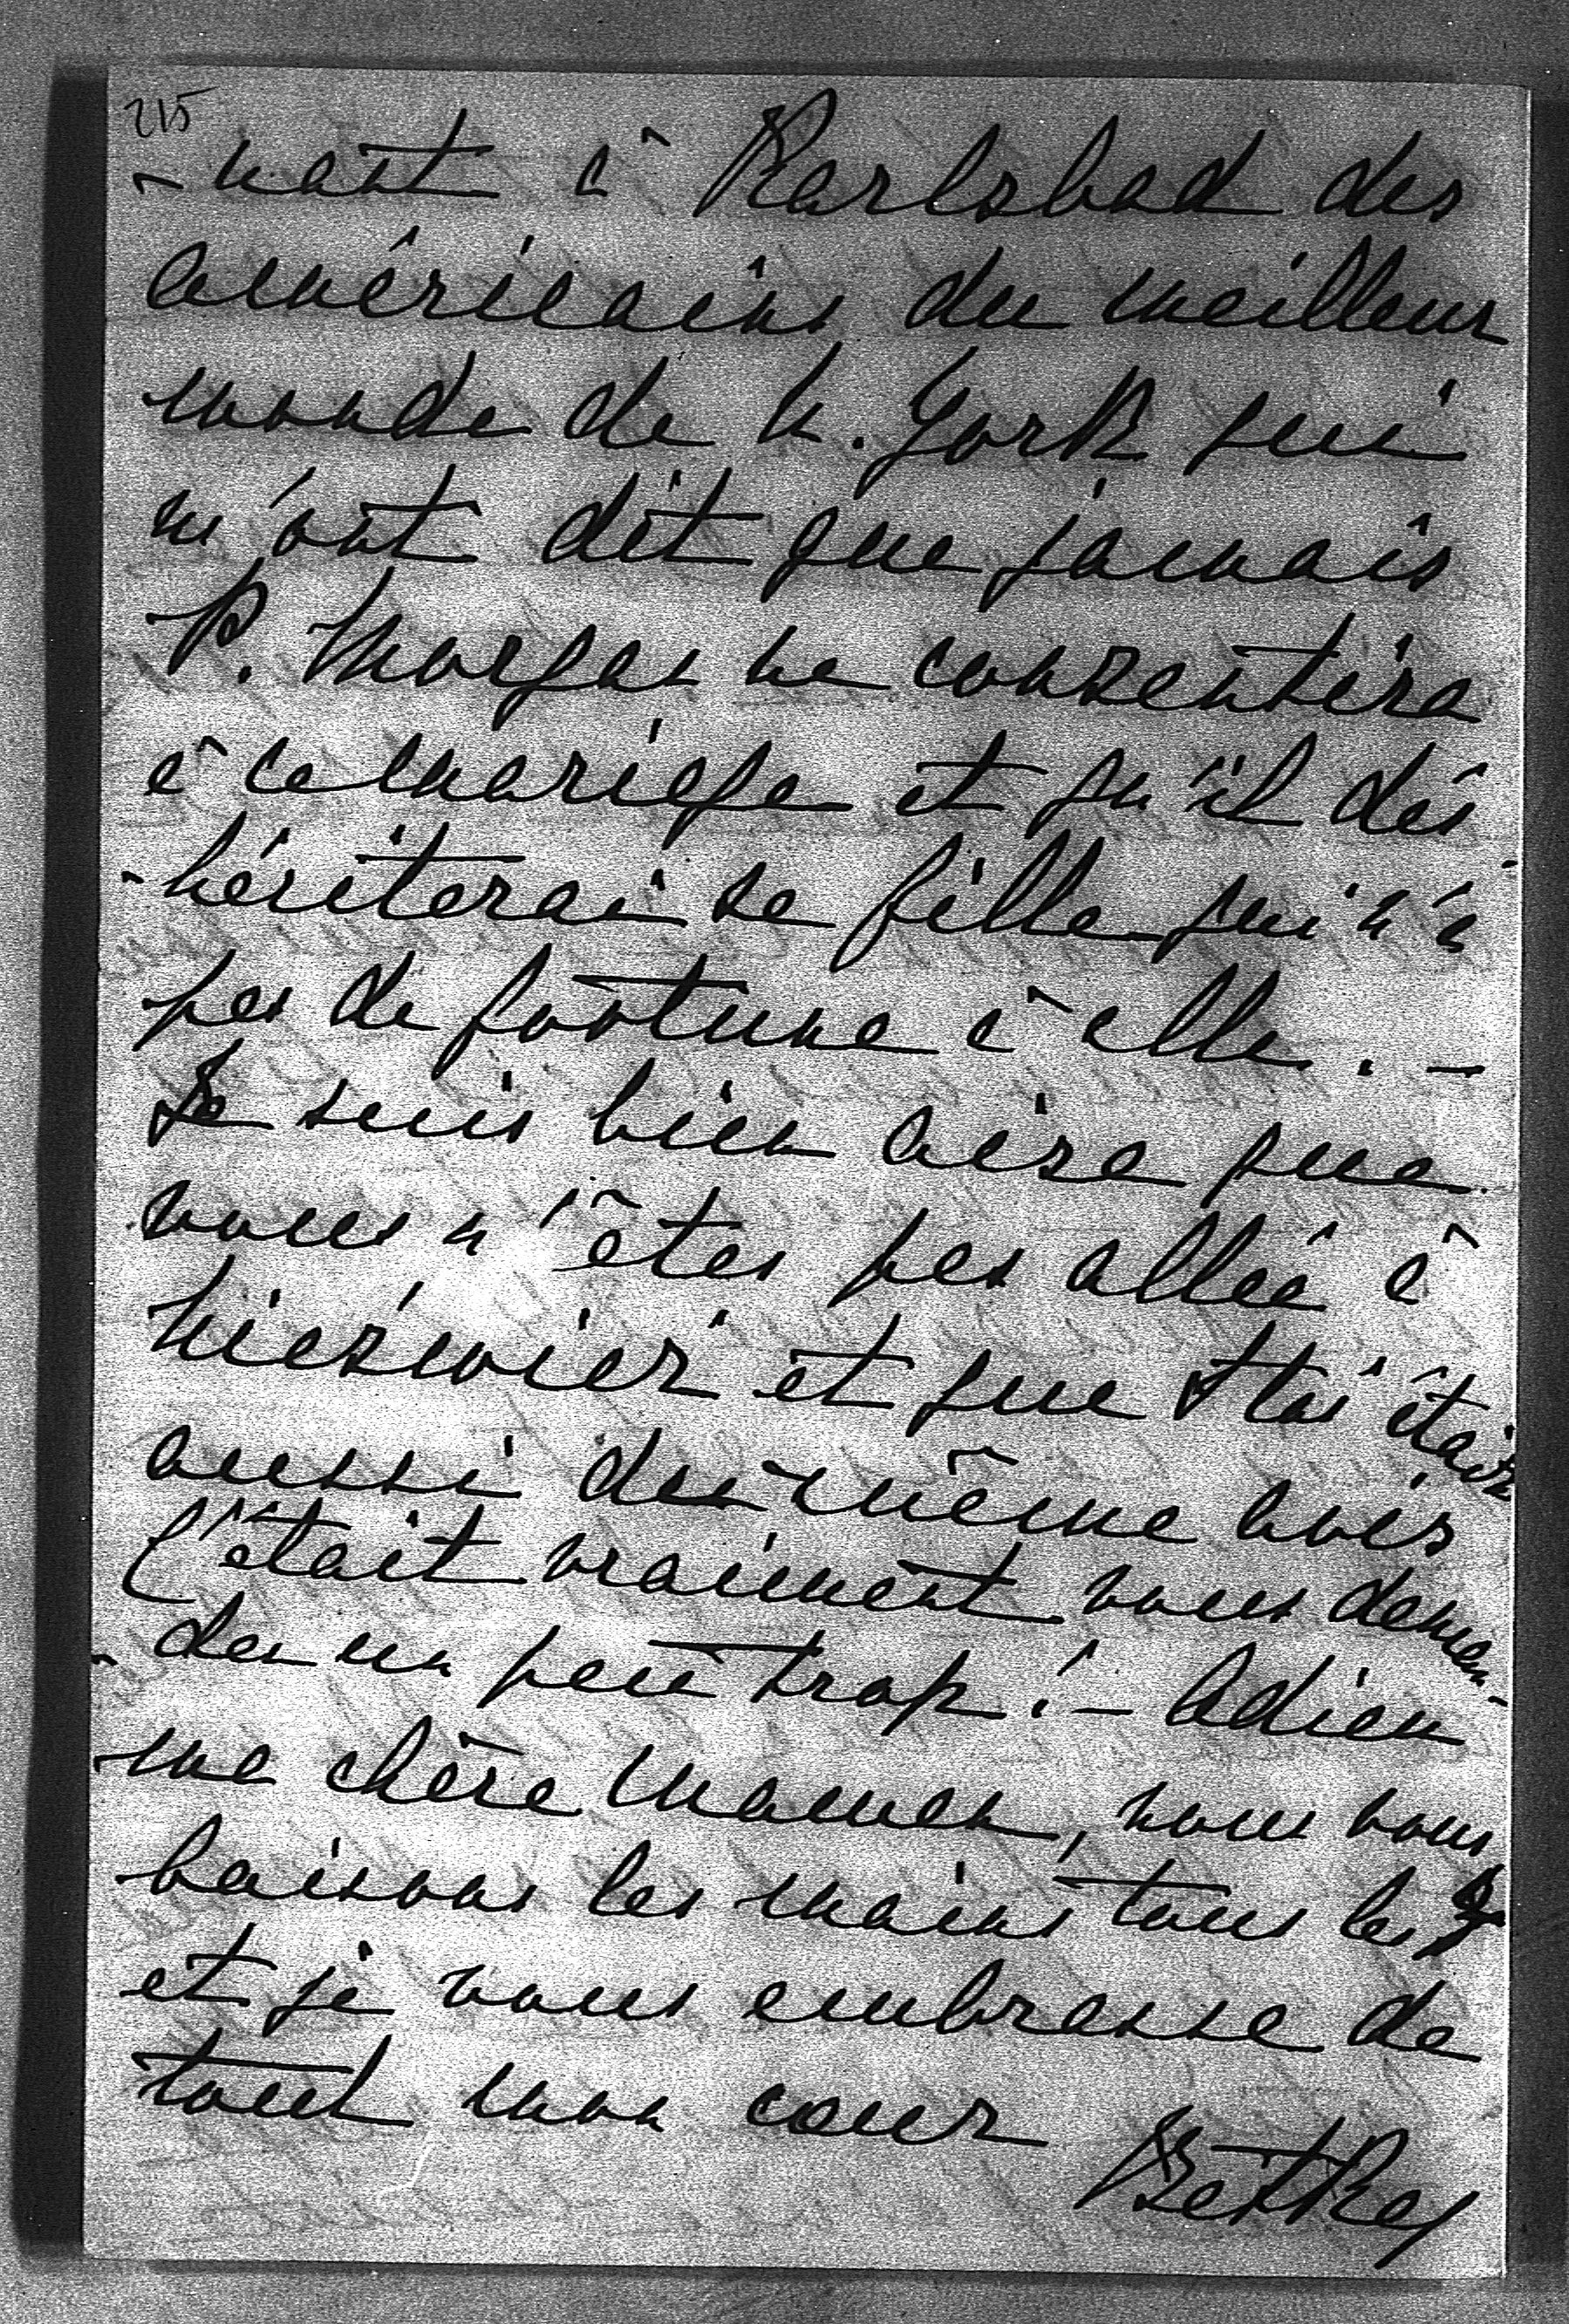 215
-nait à Karlsbad des
américains du meilleur
monde de N. York qui
m'ont dit que jamais
P. Morgan ne consentira
à ce mariage et qu'il dés
-hériterai sa fille qui n'a
pas de fortune à elle. —
Je suis bien aise que
vous n'êtes pas allée à
et que était
aussi du même avis
C'était vraiment vous deman-
-der un peu trop! — Adieu
ma chère Maman, nous vous
baisons les mains tous les
et je vous embrasse de
tout mon cœur
Betka